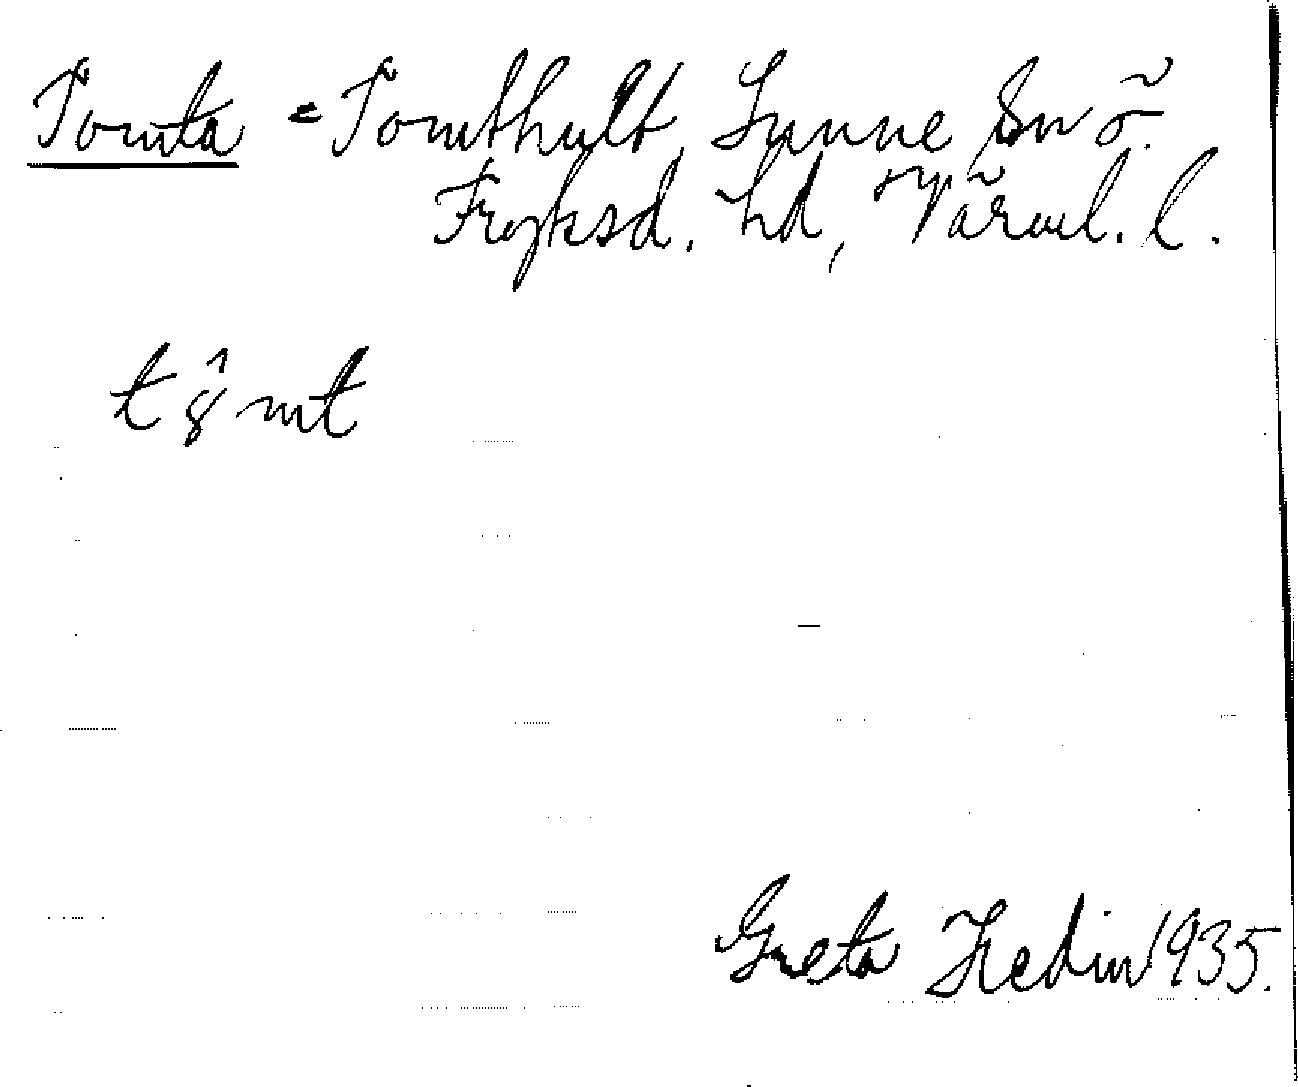 Tomta = Tomthult, Sunne sn ö.
Fryksd. hd, Värml. l.
t 8̂ mt
Greta Hedin 1935.